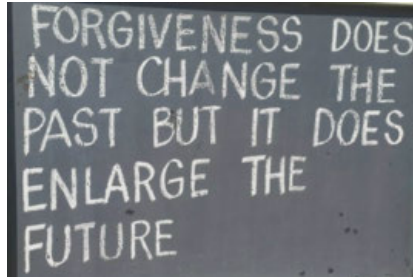 FORGIVENESS DOES
NOT CHANGE THE
PAST BUT IT DOES
ENLARGE THE
FUTURE